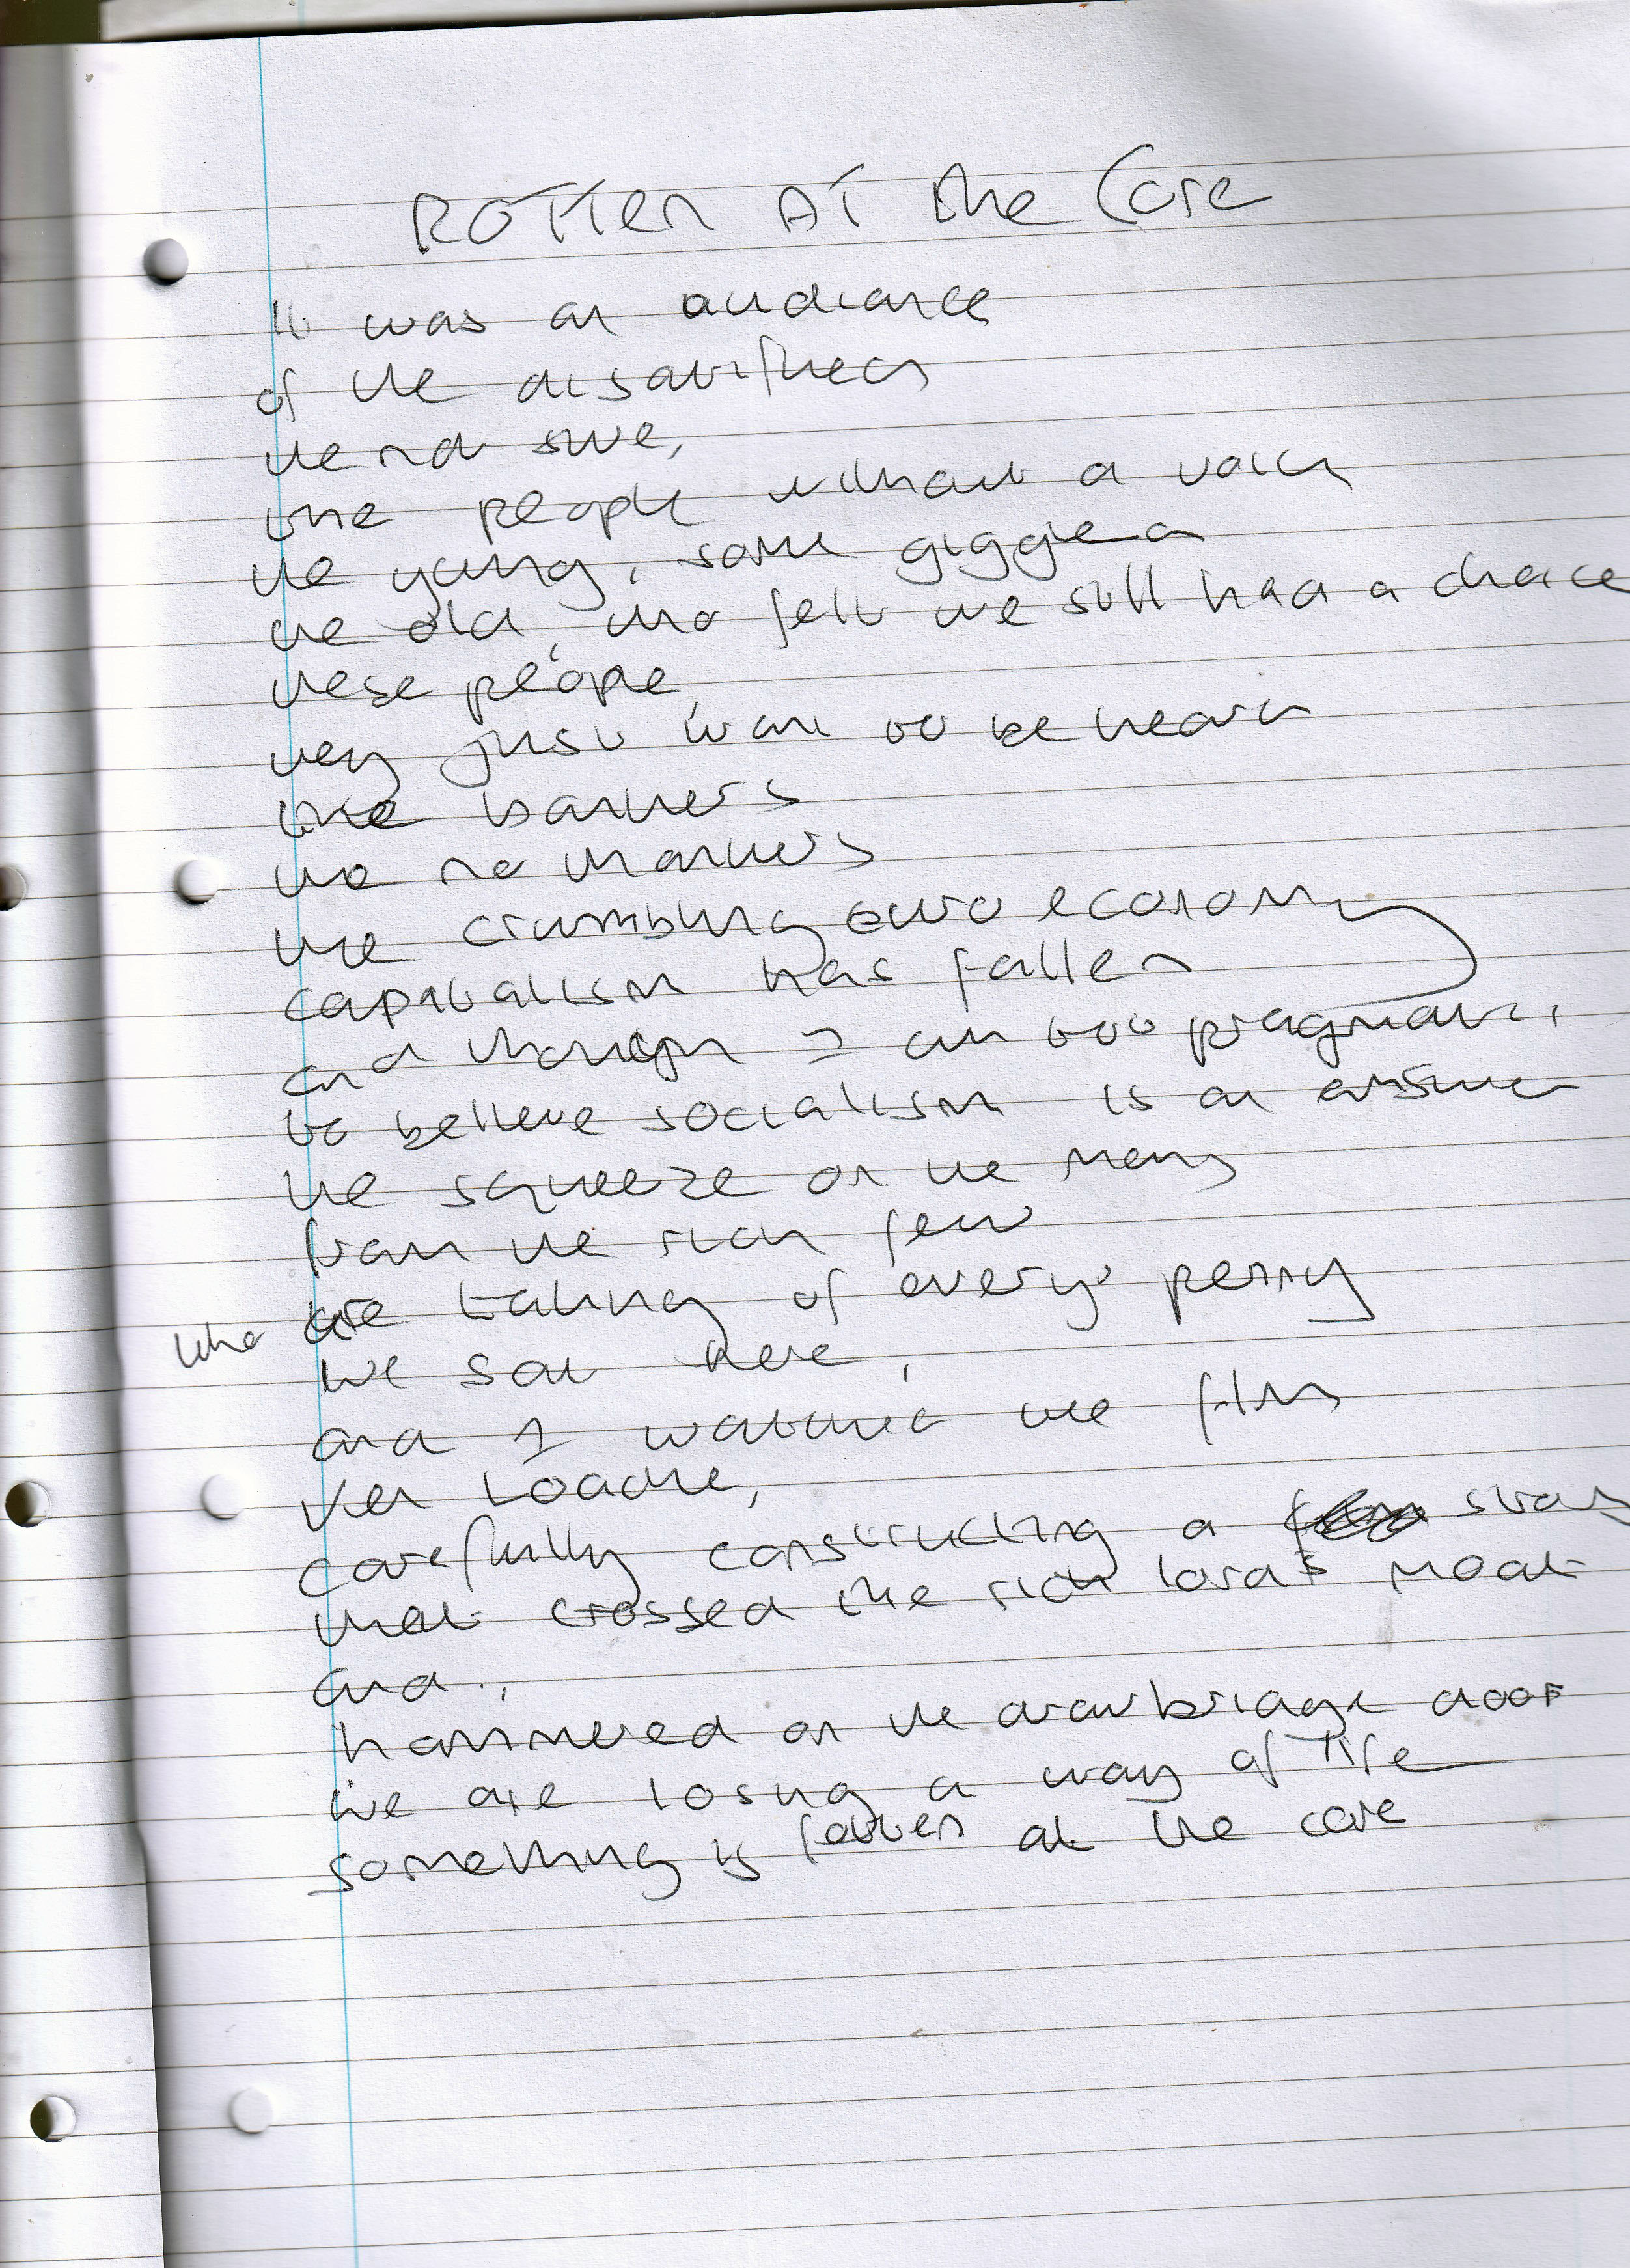 ROTTEN AT the Core
It was an audience
of the disaffected
the not sure,
the people without a voice
the young, some giggled
the old, who felt we still had a choice
these people,
they just want to be heard
the bankers
the no thankers
the crumbling euro economy
capitalism has fallen
and though I am too pragmatic,
to believe socialism is an answer
the squeeze on the many
from the rich few
who are taking of every penny
We sat here,
and I watched the film
Ken Loache,
carefully constructing a story
that crossed the rich lord's moat
and..
hammered on the drawbridge door
We are losing a way of life
something is rotten at the core